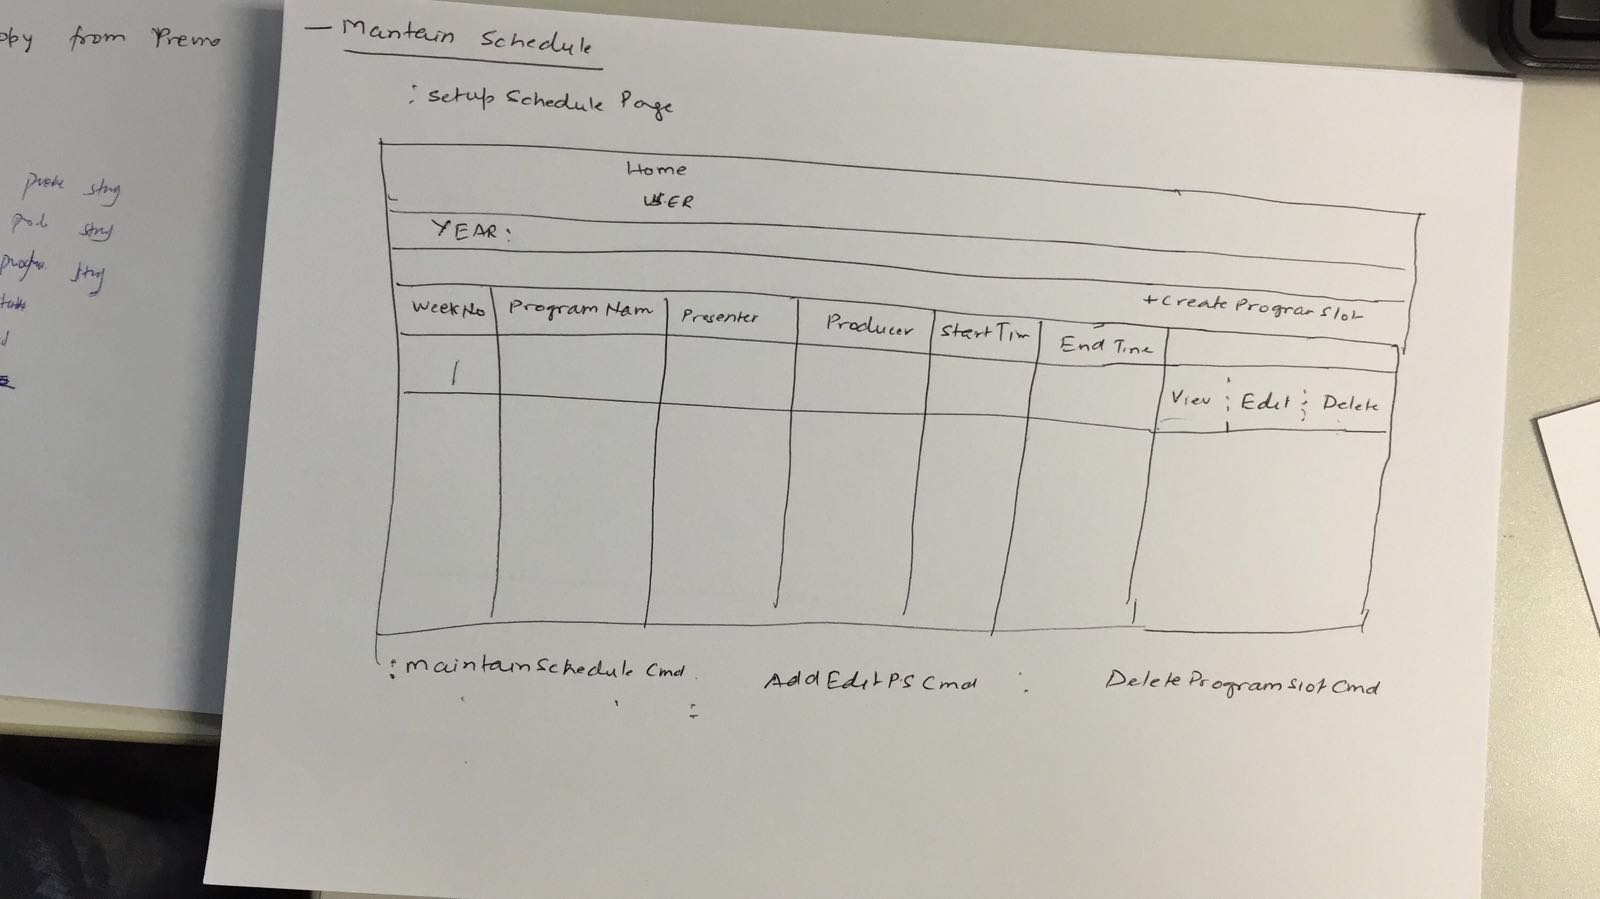 from
— Mantain Schedule
: setup Schedule Page
Home
USER
YEAR:
+Create Progran Slot
Week No Program Nam Presenter Producer Start Tim End Time
1 View Edit Delete
: maintain Schedule Cmd. Add Edit P.S Cmd : Delete Program Slot Cmd